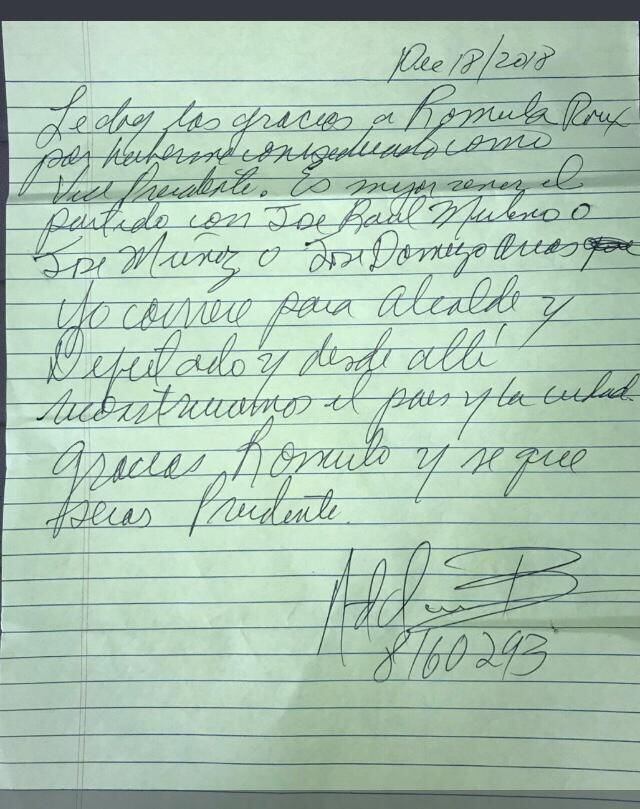 Dec 18/2018
Le doy las gracias a Romulo Roux
por haberme considerado como
Vice Presidente. Es mejor tener el
partido con Jose Raul Mulino o
Jose Muñoz o Jose Domingo Arias
Yo correre para alcalde y
Diputado y desde allí
reconstruimos el pais y la ciudad
gracias Romulo y se que
seras Presidente.
8760293